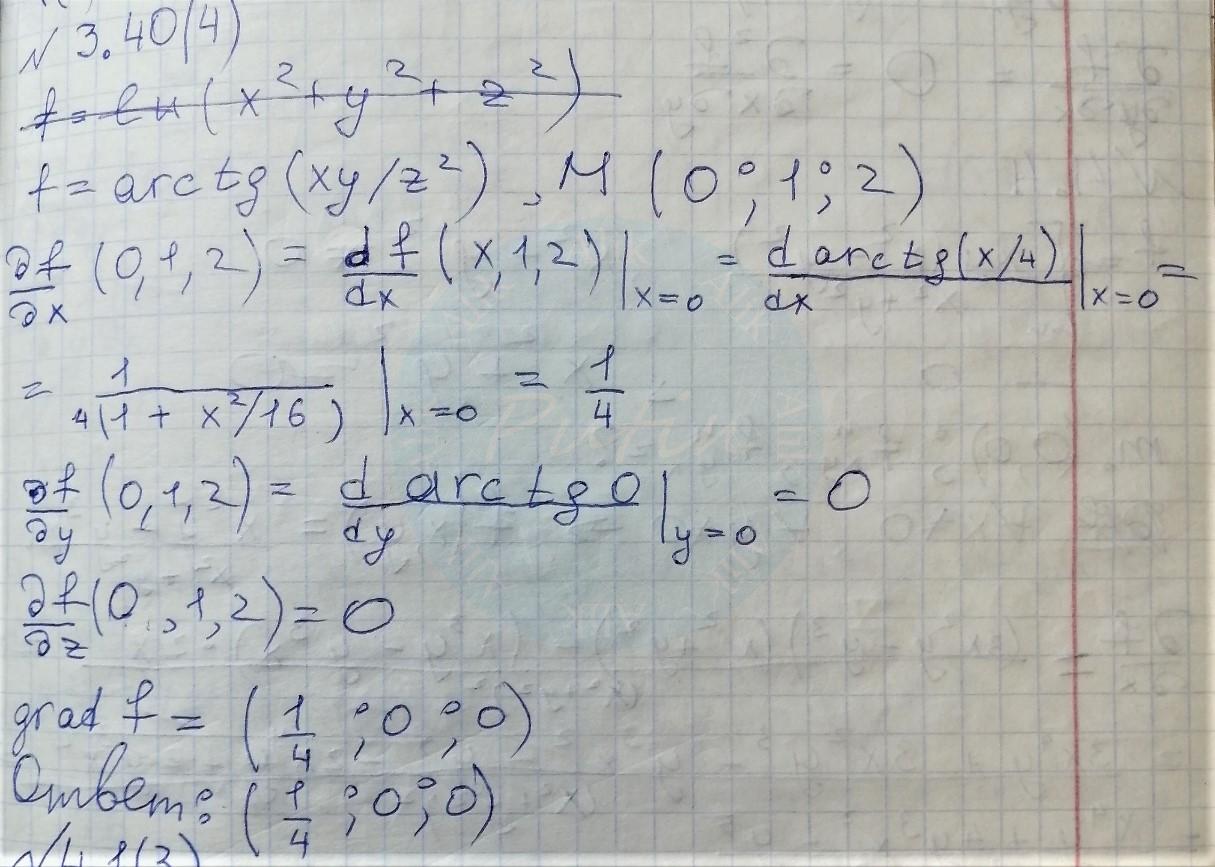 № 3.40(4)
f = ln(x² + y² + z²)
f = arctg(xy/z²), M (0; 1; 2)
∂f/∂x (0,1,2) = df/dx (x,1,2)|x=0 = d arctg(x/4)/dx |x=0 =
= 1/4(1 + x²/16) |x=0 = 1/4
∂f/∂y (0,1,2) = d arctg 0/dy |y=0 = 0
∂f/∂z (0,1,2) = 0
grad f = (1/4; 0; 0)
Ответ: (1/4; 0; 0)
№ 4.1(3)